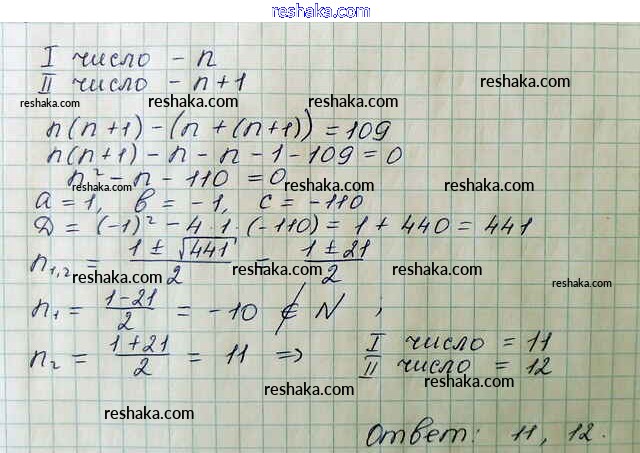 reshaka.com
I число - n
II число - n+1
reshaka.com reshaka.com reshaka.com
n(n+1) - (n + (n+1)) = 109
n(n+1) - n - n - 1 - 109 = 0
n² - n - 110 = 0
reshaka.com reshaka.com reshaka.com
a = 1, в = -1, c = -110
D = (-1)² - 4·1·(-110) = 1 + 440 = 441
n₁,₂ = (1 ± √441)/2 = (1 ± 21)/2
reshaka.com reshaka.com reshaka.com
n₁ = (1-21)/2 = -10 ∉ N ;
reshaka.com reshaka.com reshaka.com
n₂ = (1+21)/2 = 11 ⇒ I число = 11
II число = 12
reshaka.com reshaka.com reshaka.com
reshaka.com
Ответ: 11, 12.
reshaka.com